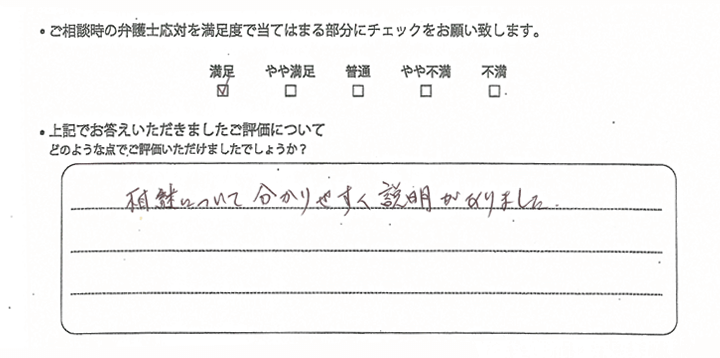 ・ご相談時の弁護士応対を満足度で当てはまる部分にチェックをお願い致します。
満足 やや満足 普通 やや不満 不満
☑ □ □ □ □
・上記でお答えいただきましたご評価について
どのような点でご評価いただけましたでしょうか？
相談について分かりやすく説明がありました。